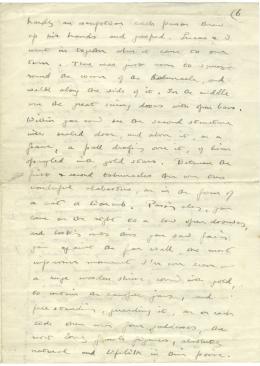 (6
hardly an exception each person threw
up his hands and gasped. Lucas & I
went in together when it came to our
turn. There was just room to squeeze
round the corner of the tabernacle, and
walk along the side of it. In the middle
are the great swing doors with open bars.
Within you could see the second structure
with sealed door, and above it, as a
frame, a pall draping over it, of linen
spangled with gold stars. Between the
first & second tabernacles there were some
wonderful alabasters, one in the form of
a cat. Passing along, you
came on the right to a low open doorway,
and looking into this you saw facing
you against the far wall the most
impressive monument I've ever seen –
a huge wooden shrine, covered with gold,
to contain the canopic jars, and
free standing, guarding it, one on each
side, were four goddesses, the
most lovely figures, absolutely
natural and lifelike in their pose.